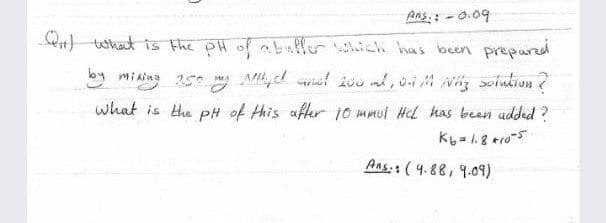 Ans.: -0.09
Q11) what is the pH of a buffer which has been prepared
by mixing 250 mg NH4cl and 200 ml, 0.1 M NH3 solution?
what is the pH of this after 10 mmol Hcl has been added?
Kb = 1.8 *10^-5
Ans.: (9.88, 9.09)